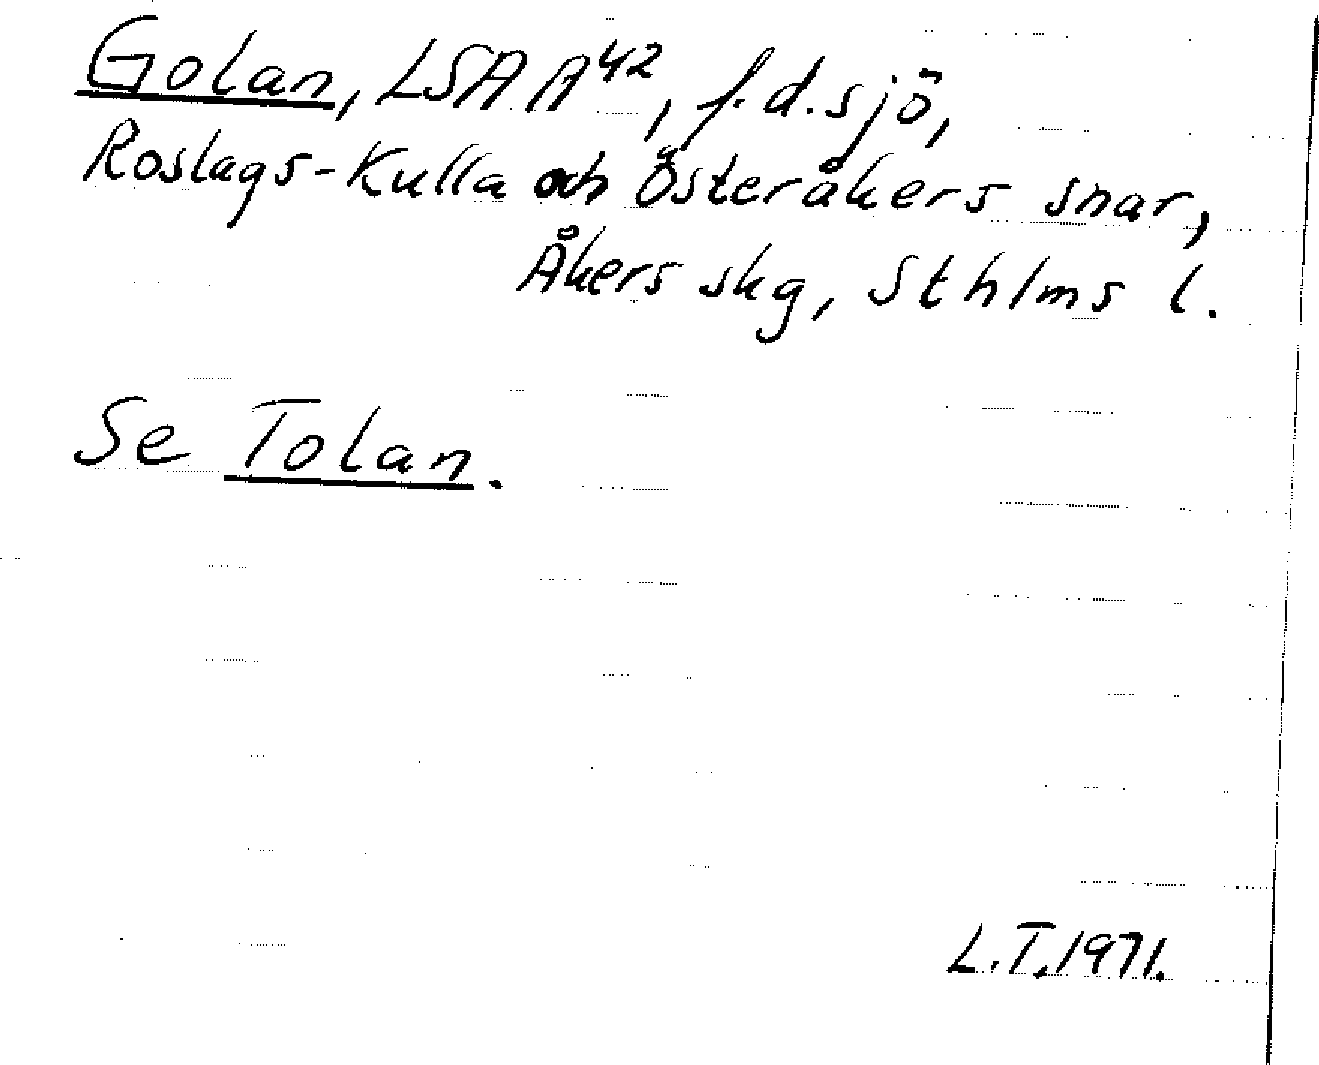 Golan, LSA A42, f.d.sjö,
Roslags-Kulla och Österåkers snar,
Åkers skg, Sthlms l.
Se Tolan.
L.T.1971.